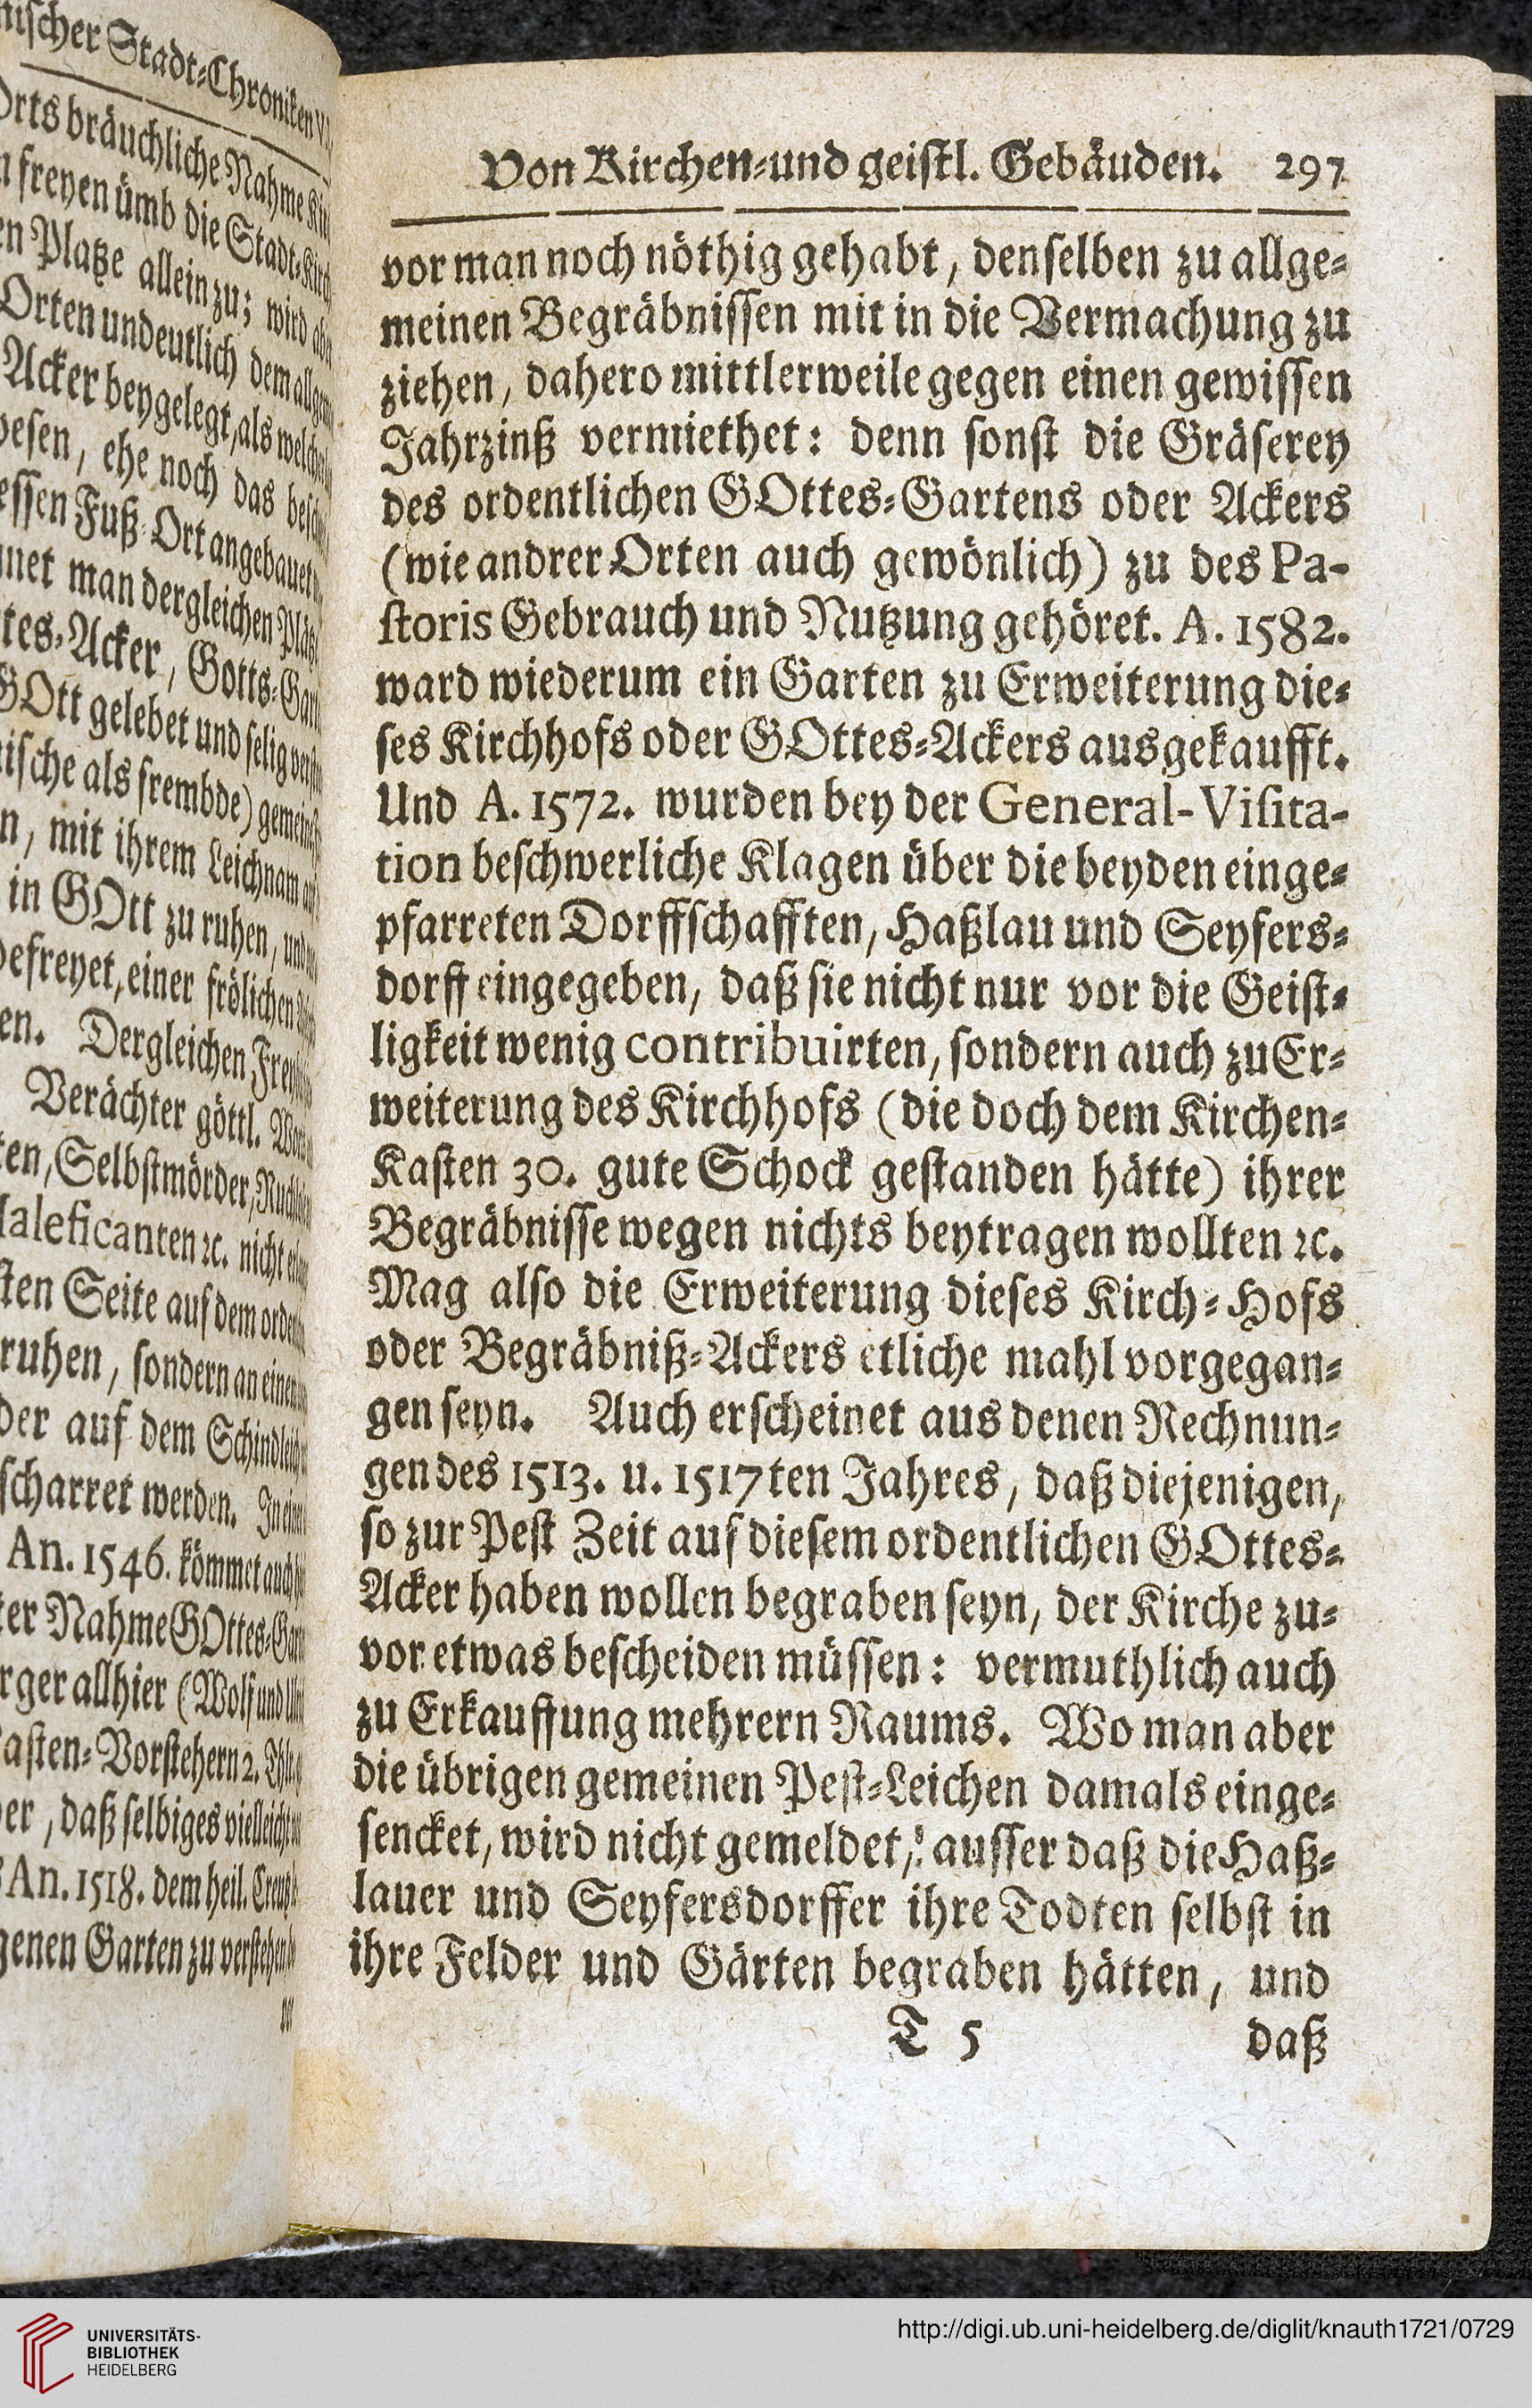 nischer Stadt-Chroniken
Orts bräuchliche Nahme
freyen ümb die Stadt-Kirch
Platze allein zu; wird
Orten undeutlich dem
Acker beygelegt, als
ehe noch das
Fuß-Ort angebauet
man dergleichen
Acker, Gotts-
GOtt gelebet und selig
als frembde)
mit ihrem Leichnam
in GOtt zu ruhen,
befreyet, einer frölichen
Dergleichen
Verächter göttl.
Selbstmörder,
Maleficanten ꝛc. nicht
Seite auf dem
ruhen, sondern an einem
auf dem
werden.
An. 1546. kömmet auch
Nahme GOttes-
allhier (Wolf und
Vorstehern 2.
daß selbiges vielleicht
An. 1518. dem heil. Creutz
Garten zu verstehen
Von Kirchen-und geistl. Gebäuden. 297
vor man noch nöthig gehabt, denselben zu allge-
meinen Begräbnissen mit in die Vermachung zu
ziehen, dahero mittlerweile gegen einen gewissen
Jahrzinß vermiethet: denn sonst die Gräserey
des ordentlichen GOttes-Gartens oder Ackers
(wie andrer Orten auch gewönlich) zu des Pa-
storis Gebrauch und Nutzung gehöret. A. 1582.
ward wiederum ein Garten zu Erweiterung die-
ses Kirchhofs oder GOttes-Ackers ausgekaufft.
Und A. 1572. wurden bey der General-Visita-
tion beschwerliche Klagen über die beyden einge-
pfarreten Dorffschafften, Haßlau und Seyfers-
dorff eingegeben, daß sie nicht nur vor die Geist-
ligkeit wenig contribuirten, sondern auch zu Er-
weiterung des Kirchhofs (die doch dem Kirchen-
Kasten 30. gute Schock gestanden hätte) ihrer
Begräbnisse wegen nichts beytragen wollten ꝛc.
Mag also die Erweiterung dieses Kirch-Hofs
oder Begräbniß-Ackers etliche mahl vorgegan-
gen seyn. Auch erscheinet aus denen Rechnun-
gen des 1513. u. 1517ten Jahres, daß diejenigen,
so zur Pest Zeit auf diesem ordentlichen GOttes-
Acker haben wollen begraben seyn, der Kirche zu-
vor etwas bescheiden müssen: vermuthlich auch
zu Erkauffung mehrern Raums. Wo man aber
die übrigen gemeinen Pest-Leichen damals einge-
sencket, wird nicht gemeldet, ausser daß die Haß-
lauer und Seyfersdorffer ihre Todten selbst in
ihre Felder und Gärten begraben hätten, und
T 5 daß
UNIVERSITÄTS-
BIBLIOTHEK
HEIDELBERG
http://digi.ub.uni-heidelberg.de/diglit/knauth1721/0729